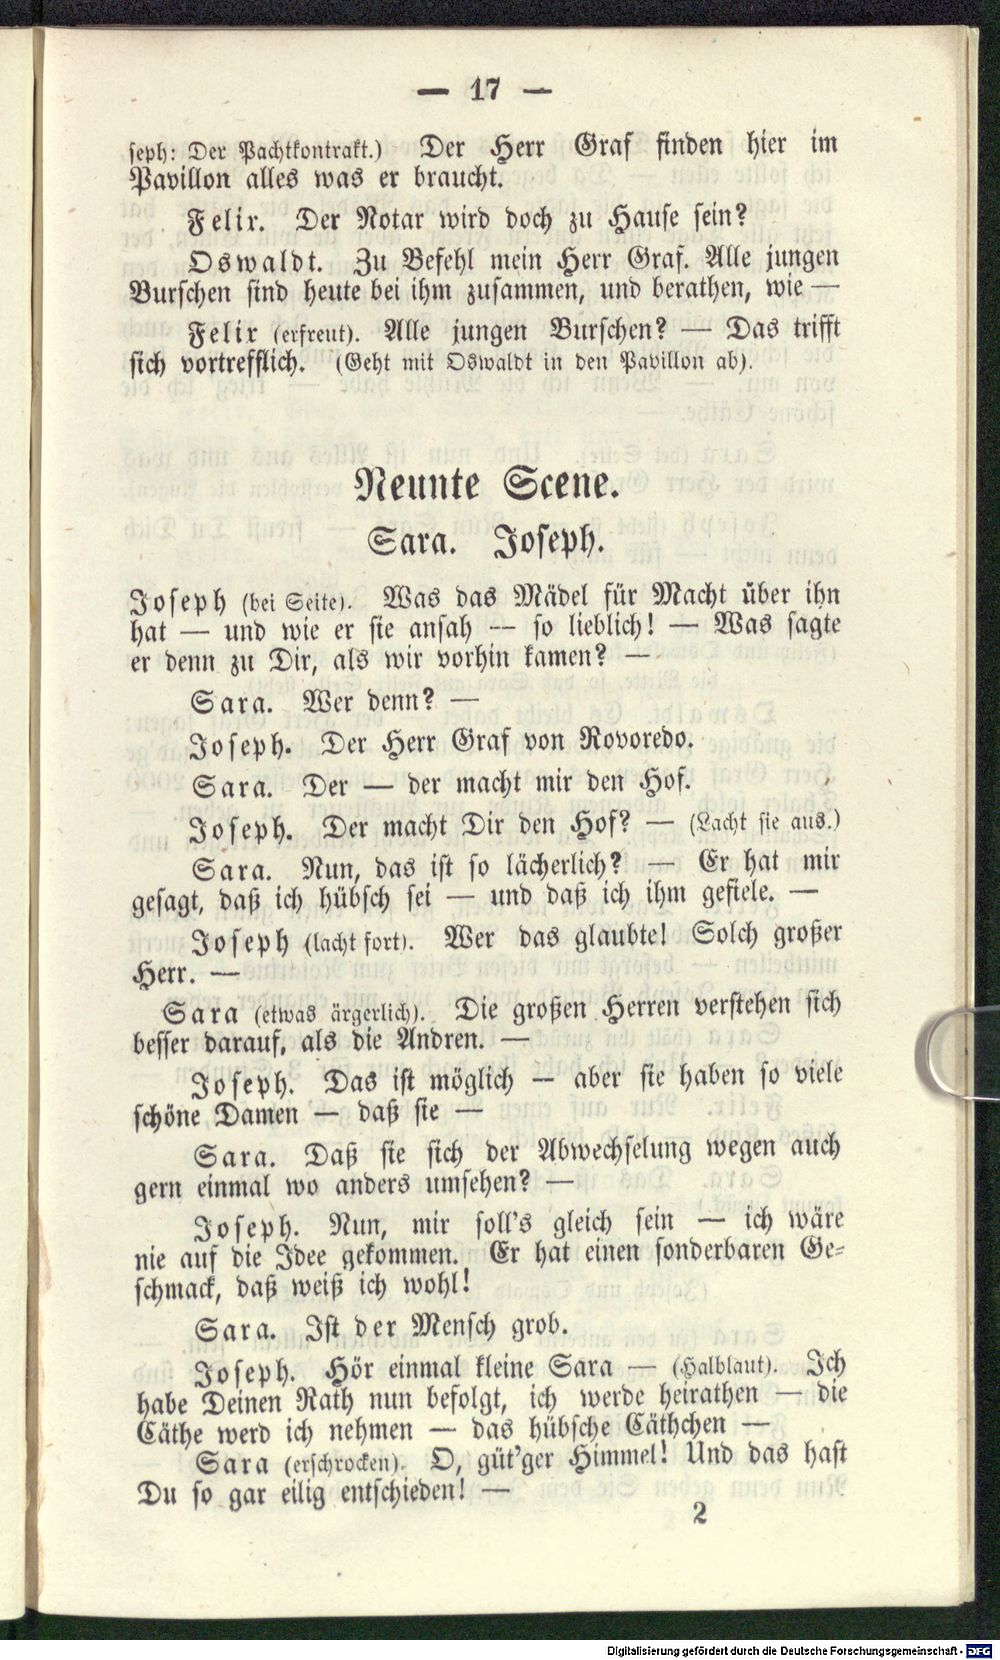 — 17 —
seph: Der Pachtkontrakt.) Der Herr Graf finden hier im
Pavillon alles was er braucht.
Felix. Der Notar wird doch zu Hause sein?
Oswaldt. Zu Befehl mein Herr Graf. Alle jungen
Burschen sind heute bei ihm zusammen, und berathen, wie —
Felix (erfreut). Alle jungen Burschen? — Das trifft
sich vortrefflich. (Geht mit Oswaldt in den Pavillon ab).
Neunte Scene.
Sara. Joseph.
Joseph (bei Seite). Was das Mädel für Macht über ihn
hat — und wie er sie ansah — so lieblich! — Was sagte
er denn zu Dir, als wir vorhin kamen? —
Sara. Wer denn? —
Joseph. Der Herr Graf von Rovoredo.
Sara. Der — der macht mir den Hof.
Joseph. Der macht Dir den Hof? — (Lacht sie aus.)
Sara. Nun, das ist so lächerlich? — Er hat mir
gesagt, daß ich hübsch sei — und daß ich ihm gefiele. —
Joseph (lacht fort). Wer das glaubte! Solch großer
Herr. —
Sara (etwas ärgerlich). Die großen Herren verstehen sich
besser darauf, als die Andren. —
Joseph. Das ist möglich — aber sie haben so viele
schöne Damen — daß sie —
Sara. Daß sie sich der Abwechselung wegen auch
gern einmal wo anders umsehen? —
Joseph. Nun, mir soll's gleich sein — ich wäre
nie auf die Idee gekommen. Er hat einen sonderbaren Ge-
schmack, daß weiß ich wohl!
Sara. Ist der Mensch grob.
Joseph. Hör einmal kleine Sara — (Halblaut). Ich
habe Deinen Rath nun befolgt, ich werde heirathen — die
Cäthe werd ich nehmen — das hübsche Cäthchen —
Sara (erschrocken). O, güt'ger Himmel! Und das hast
Du so gar eilig entschieden! —
2
Digitalisierung gefördert durch die Deutsche Forschungsgemeinschaft - DFG